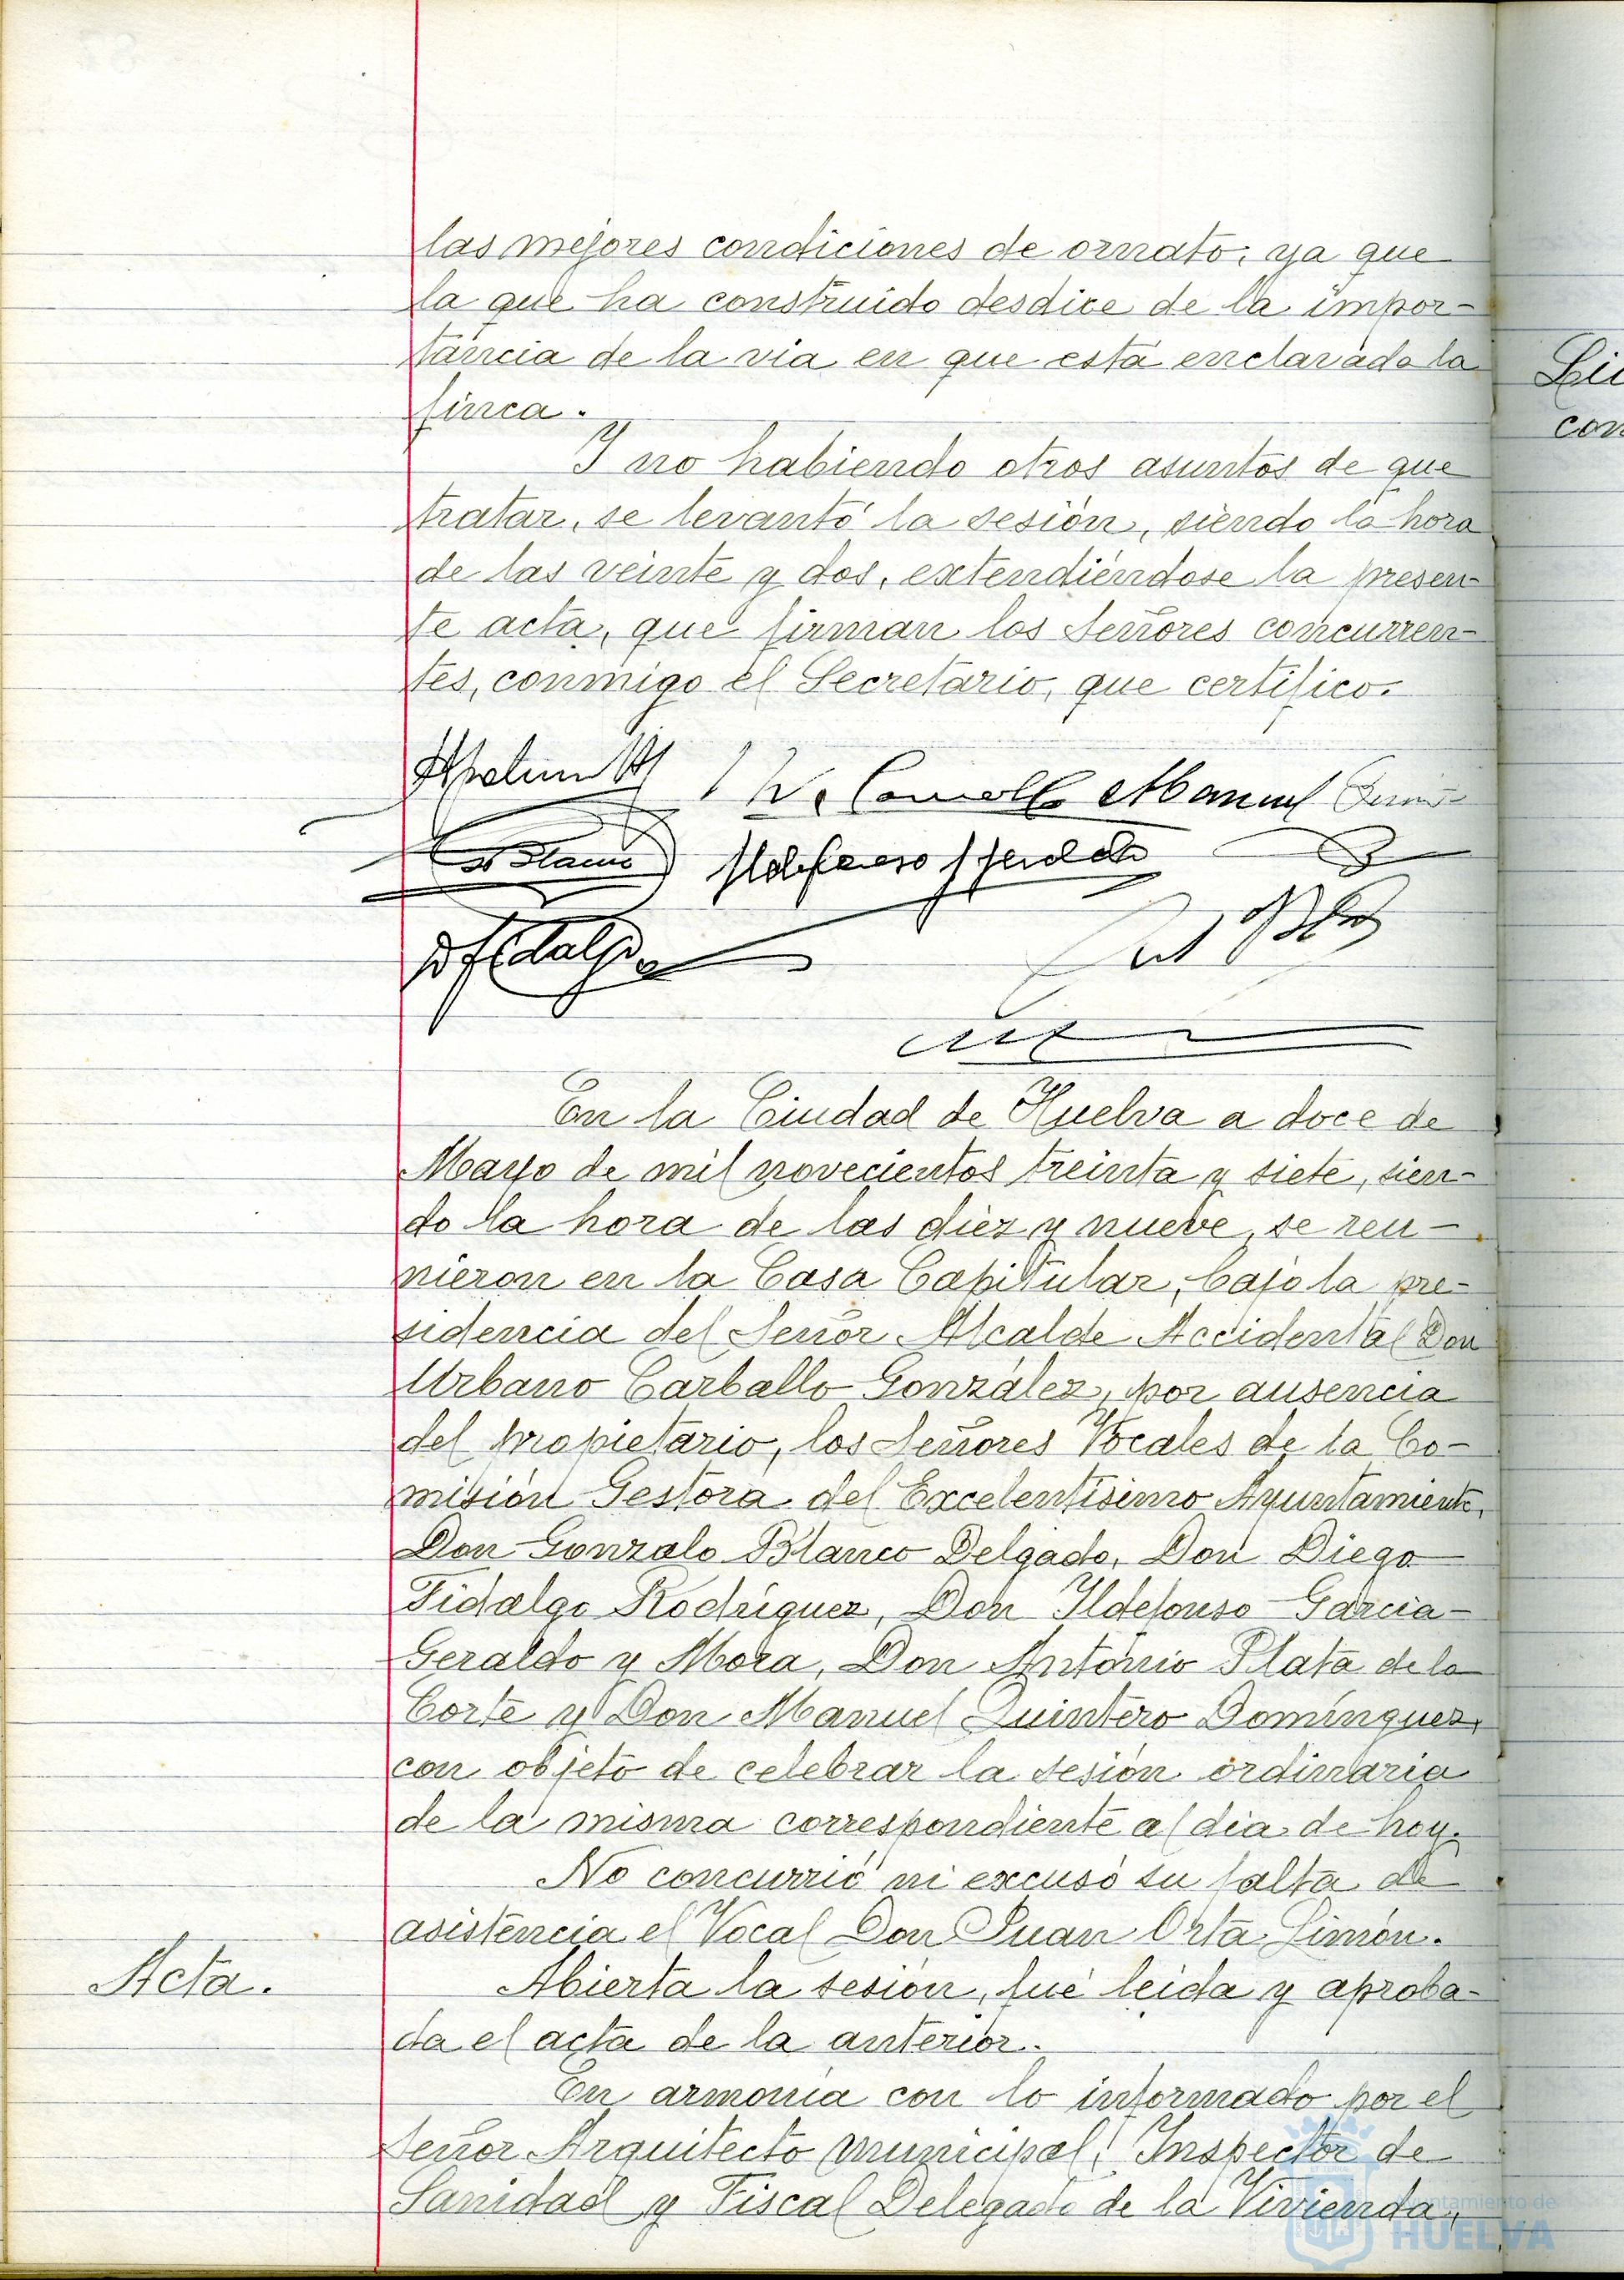 las mejores condiciones de ornato, ya que
la que ha construido desdice de la impor-
tancia de la via en que está enclavada la
finca.
Y no habiendo otros asuntos de que
tratar, se levantó la sesión, siendo la hora
de las veinte y dos, extendiéndose la presen-
te acta, que firman los Señores concurren-
tes, conmigo el Secretario, que certifico.
Manuel
Ildefonso
En la Ciudad de Huelva a doce de
Mayo de mil novecientos treinta y siete, sien-
do la hora de las diez y nueve, se reu-
nieron en la Casa Capitular, bajo la pre-
sidencia del Señor Alcalde Accidental Don
Urbano Carballo González, por ausencia
del propietario, los Señores Vocales de la Co-
misión Gestora del Excelentísimo Ayuntamiento,
Don Gonzalo Blanco Delgado, Don Diego
Fidalgo Rodríguez, Don Ildefonso Garcia-
Geraldo y Mora, Don Antonio Plata de la
Corte y Don Manuel Quintero Domínguez,
con objeto de celebrar la sesión ordinaria
de la misma correspondiente al dia de hoy.
No concurrió ni excusó su falta de
asistencia el Vocal Don Juan Orta Simón.
Acta.
Abierta la sesión, fué leida y aproba-
da el acta de la anterior.
En armonia con lo informado por el
Señor Arquitecto municipal, Inspector de
Sanidad y Fiscal Delegado de la Vivienda,
Ayuntamiento de
HUELVA